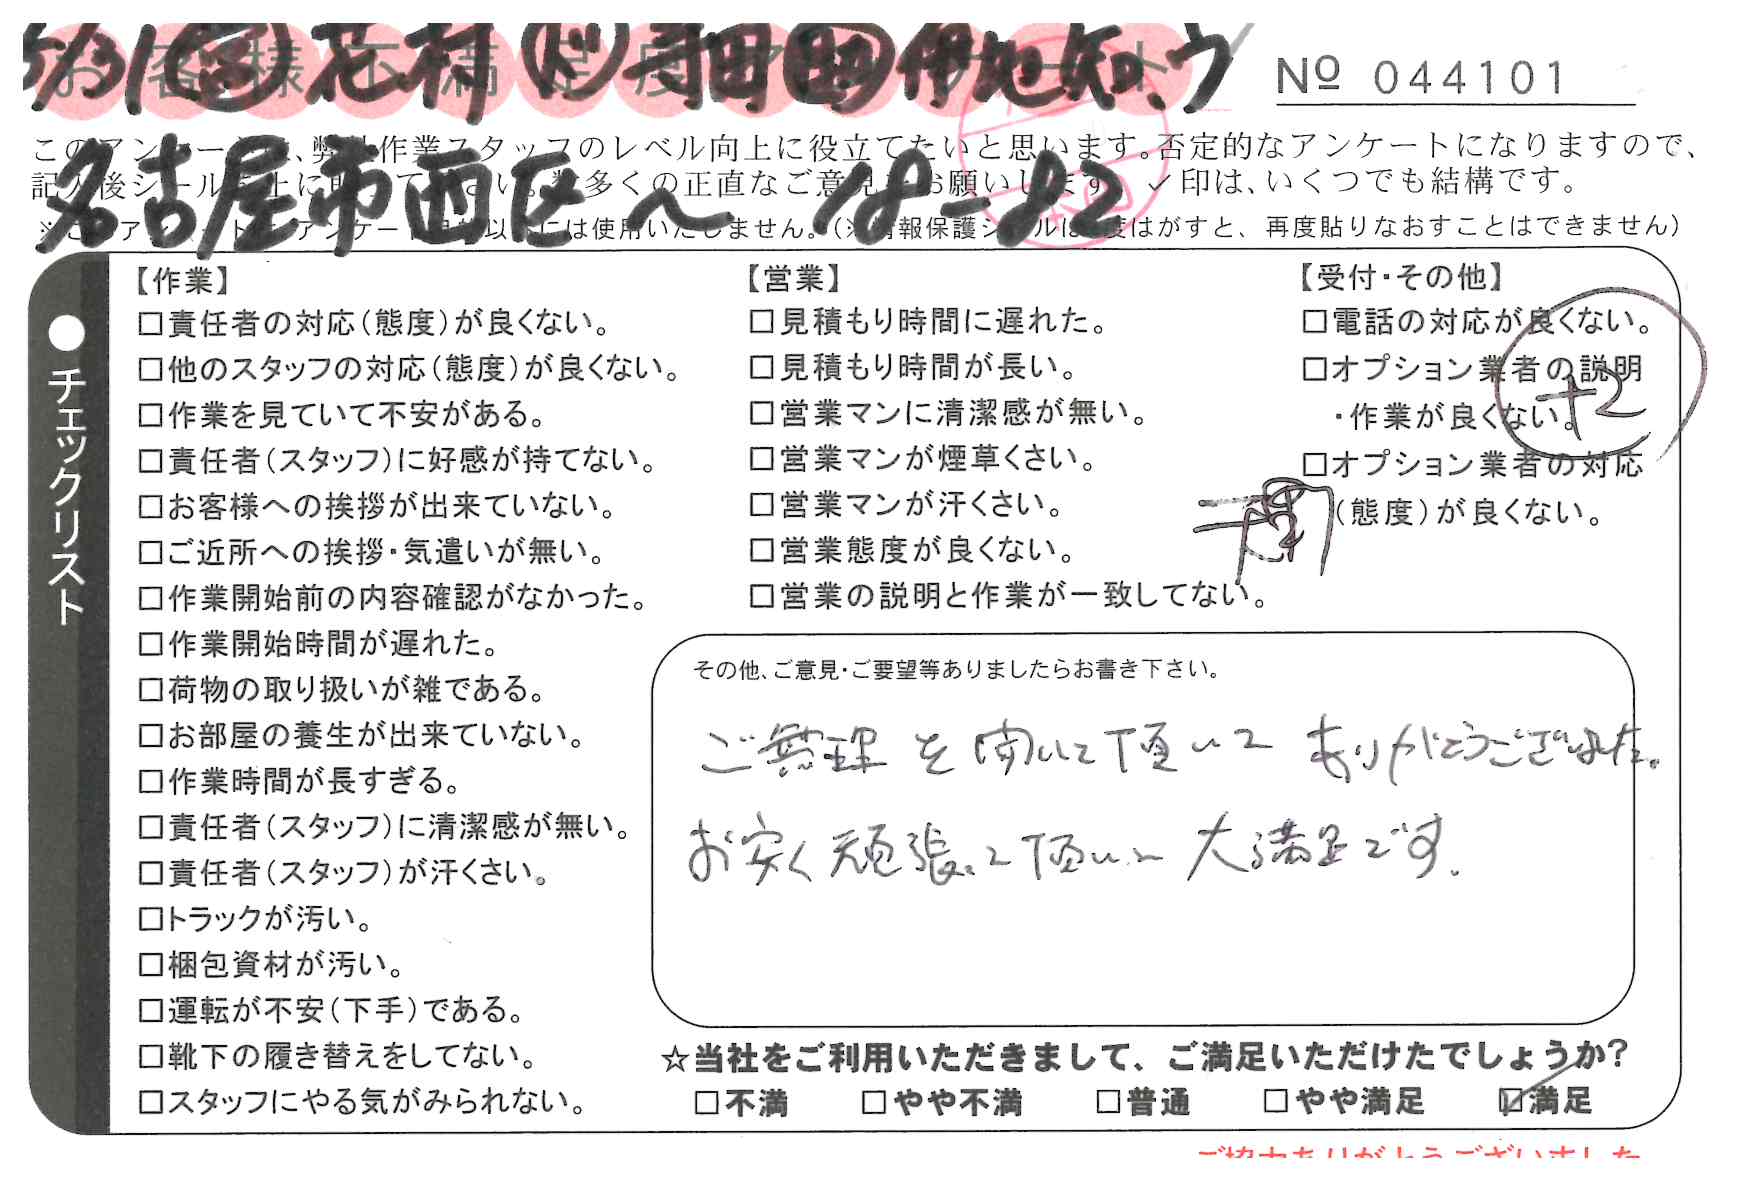 5/31 営 花村 ド 寺田 助 伊地知、ウ
お客様不満足度アンケート
No 044101
名古屋市西区〜 18-22
このアンケートは、弊社作業スタッフのレベル向上に役立てたいと思います。否定的なアンケートになりますので、
記入後シールを上に貼って下さい。数多くの正直なご意見をお願いします。✓印は、いくつでも結構です。
※このアンケートは、アンケート目的以外には使用いたしません。(※情報保護シールは1度はがすと、再度貼りなおすことはできません)
●チェックリスト
【作業】
□責任者の対応(態度)が良くない。
□他のスタッフの対応(態度)が良くない。
□作業を見ていて不安がある。
□責任者(スタッフ)に好感が持てない。
□お客様への挨拶が出来ていない。
□ご近所への挨拶・気遣いが無い。
□作業開始前の内容確認がなかった。
□作業開始時間が遅れた。
□荷物の取り扱いが雑である。
□お部屋の養生が出来ていない。
□作業時間が長すぎる。
□責任者(スタッフ)に清潔感が無い。
□責任者(スタッフ)が汗くさい。
□トラックが汚い。
□梱包資材が汚い。
□運転が不安(下手)である。
□靴下の履き替えをしてない。
□スタッフにやる気がみられない。
【営業】
□見積もり時間に遅れた。
□見積もり時間が長い。
□営業マンに清潔感が無い。
□営業マンが煙草くさい。
□営業マンが汗くさい。
□営業態度が良くない。
□営業の説明と作業が一致してない。
【受付・その他】
□電話の対応が良くない。
□オプション業者の説明
・作業が良くない。
□オプション業者の対応
(態度)が良くない。
+2
その他、ご意見・ご要望等ありましたらお書き下さい。
ご無理を聞いて頂いてありがとうございました。
お安く頑張って頂いて大満足です。
☆当社をご利用いただきまして、ご満足いただけたでしょうか?
□不満 □やや不満 □普通 □やや満足 ☑満足
ご協力ありがとうございました